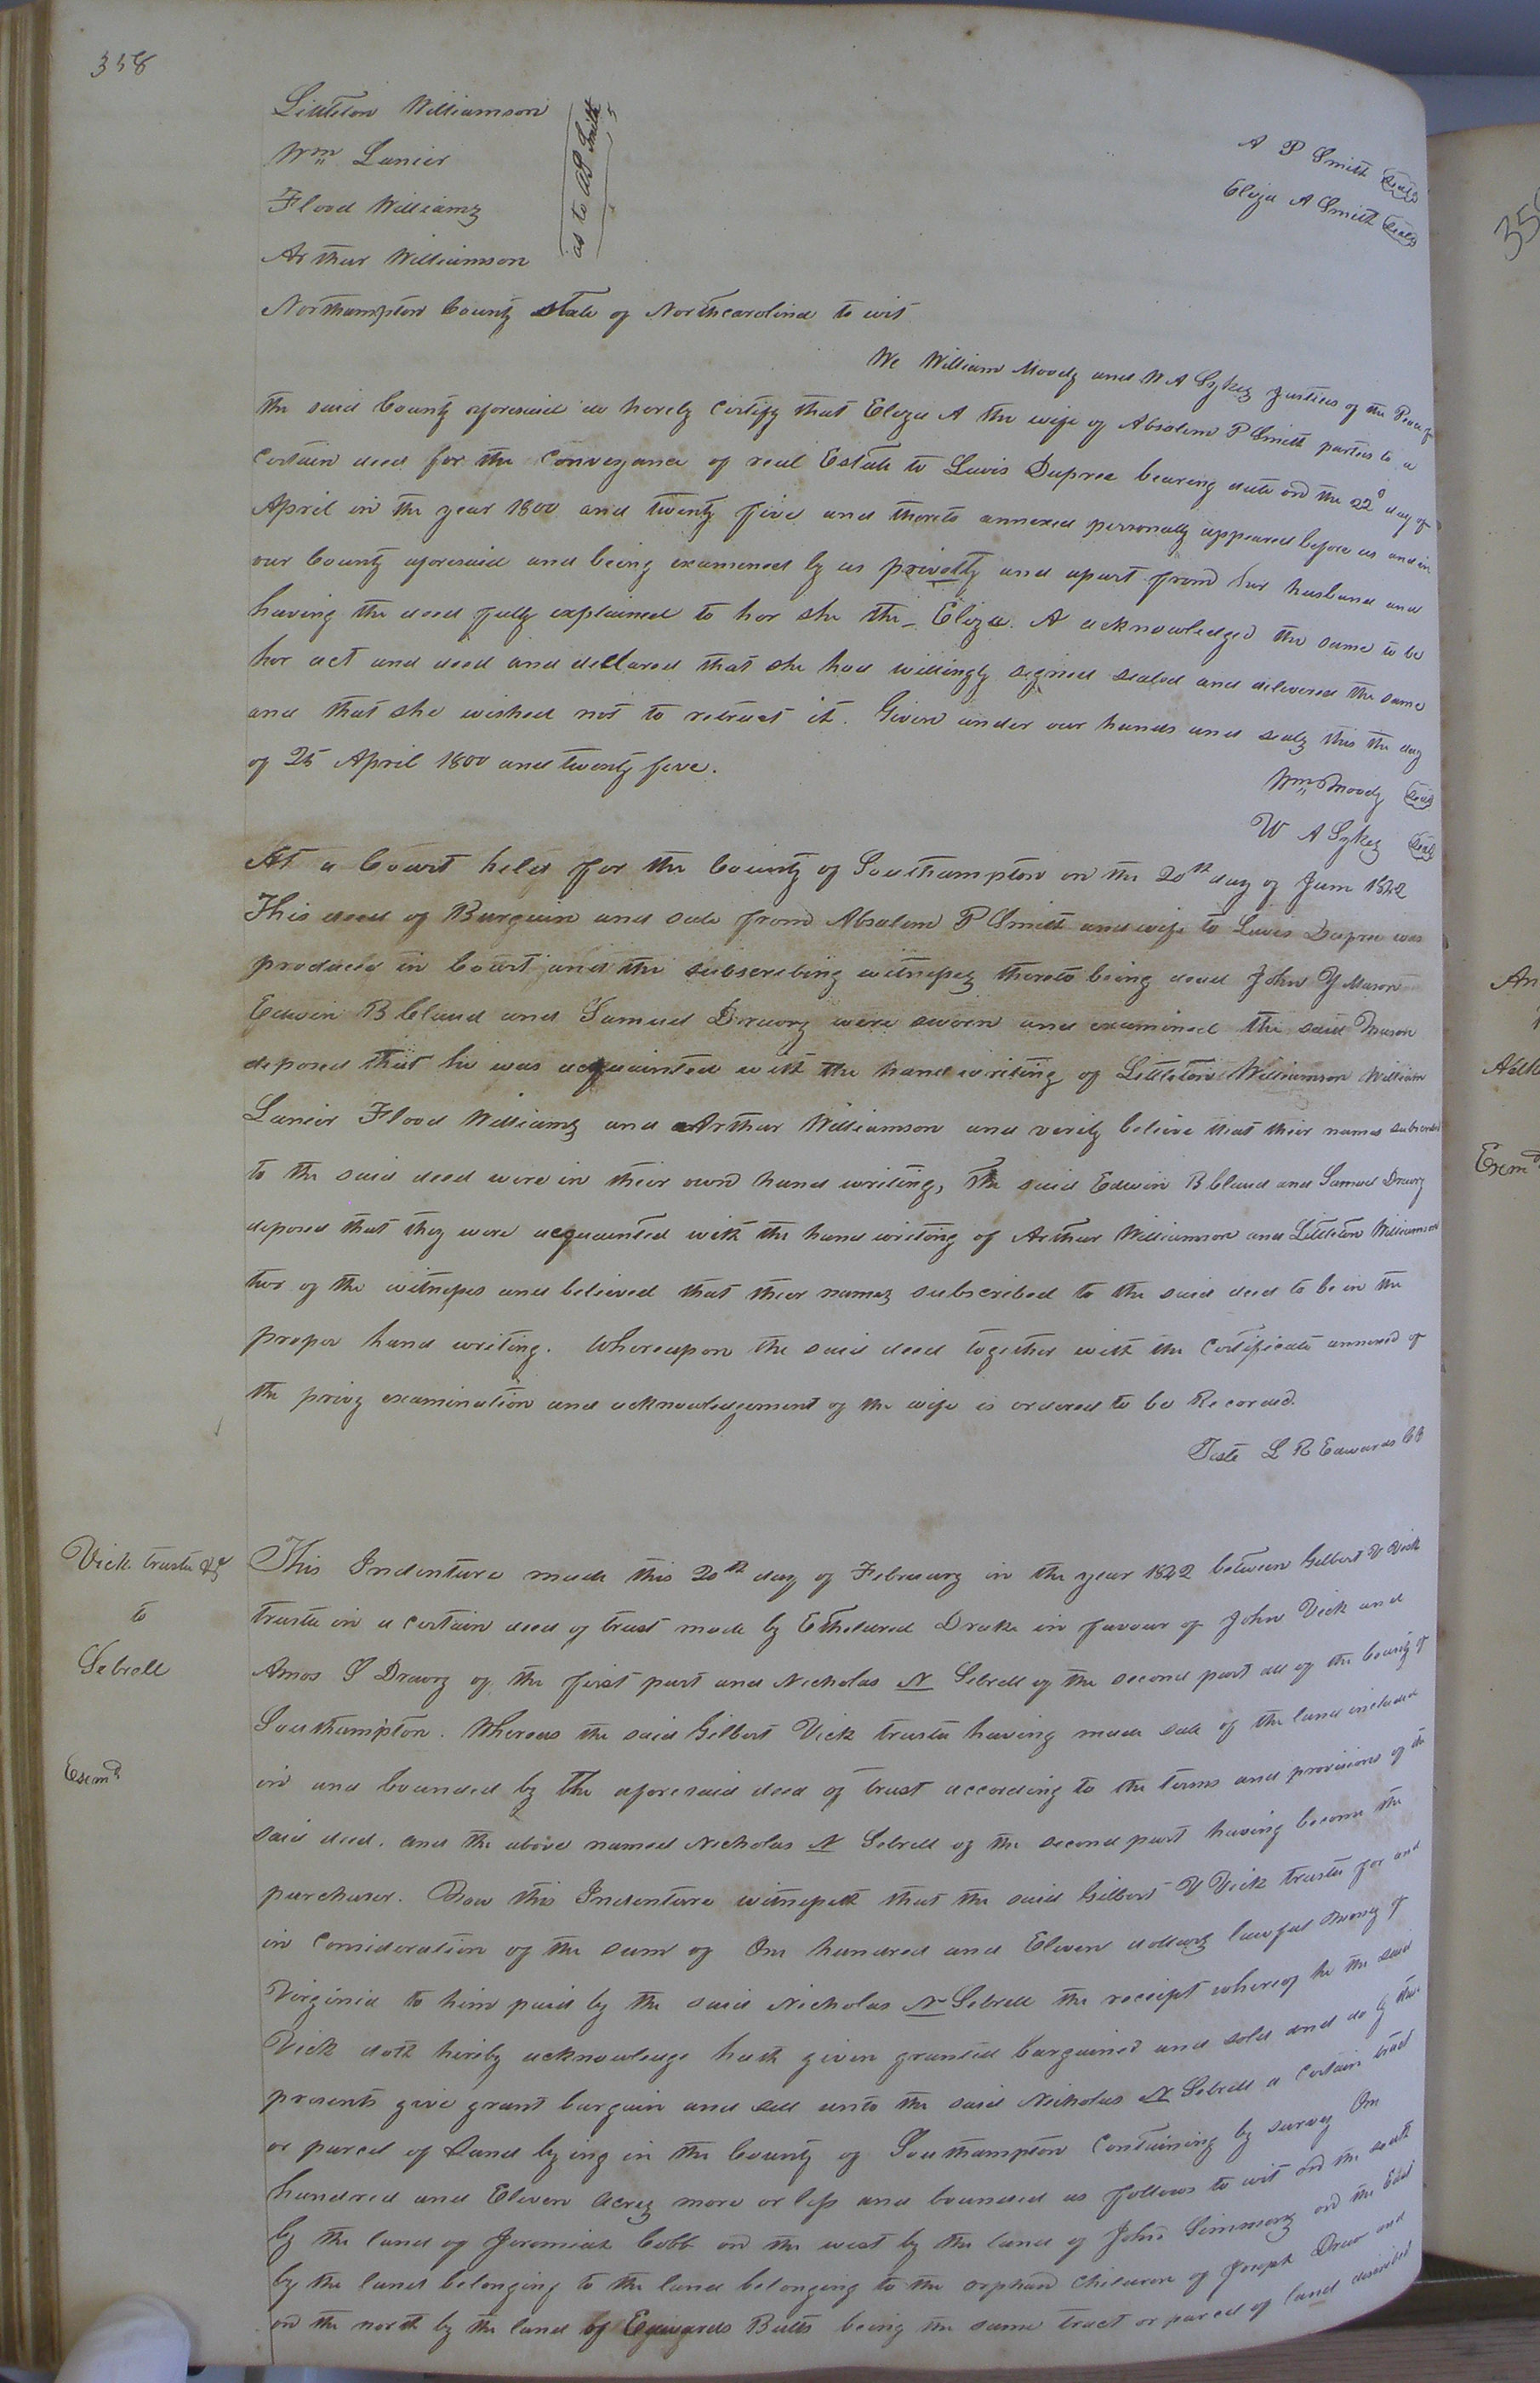 358
Littleton Williamson
Wm Lanier
Flood Williams
Arthur Williamson
as to AP Smith
A P Smith Seal
Eliza A Smith Seal
Northampton County State of Northcarolina to wit
We William Moody and W A Sykes Justices of the Peace for
the said County aforesaid do hereby Certify that Eliza A the wife of Absalom P Smith parties to a
Certain deed for the Conveyance of real Estate to Lewis Dupree bearing date on the 22d day of
April in the year 1800 and twenty five and thereto annexed personally appeared before us and in
our County aforesaid and being examened by us privatly and apart from her husband and
having the deed fully explained to her she the Eliza A acknowledged the same to be
her act and deed and declared that she had willingly signed sealed and delivered the same
and that she wished not to retract it. Given under our hands and seals this the day
of 25 April 1800 and twenty five.
Wm Moody Seal
W A Sykes Seal
At a Court held for the County of Southampton on the 20th day of June 1842
This deed of Bargain and sale from Absalom P Smith and wife to Lewis Dupree was
produced in Court and the subscribing witnesses thereto being dead John Y Mason
Edwin B Claud and Samuel Drewry were sworn and examined the said Mason
deposed that he was acquainted with the hand writing of Littleton Williamson William
Lanier Flood Williams and Arthur Williamson and verily believe that their names subscribed
to the said deed were in their own hand writing, The said Edwin B Claud and Samuel Drewry
deposed that they were acquainted with the hand writing of Arthur Williamson and Littleton Williamson
two of the witnesses and believed that their names subscribed to the said deed to be in the
proper hand writing. Whereupon the said deed together with the Certificate annexed of
the privy examination and acknowledgement of the wife is ordered to be Recorded.
Teste L R Edwards CC
Vick trustee &c
to
Sebrell
Exmd
This Indenture made this 20th day of February in the year 1842 between Gilbert V Vick
trustee in a certain deed of trust made by Etheldred Drake in favour of John Vick and
Amos J Drewry of the first part and Nicholas N Sebrell of the second part all of the County of
Southampton. Whereas the said Gilbert Vick trustee having made sale of the land included
in and bounded by the aforesaid deed of trust according to the terms and provisions of the
said deed. and the above named Nicholas N Sebrell of the second part having become the
purchaser. Now this Indenture witnesseth that the said Gilbert V Vick trustee for and
in Consideration of the sum of One hundred and Eleven dollars lawful money of
Virginia to him paid by the said Nicholas N Sebrell the receipt whereof he the said
Vick doth hereby acknowledge hath given granted bargained and sold and do by these
presents give grant bargain and sell unto the said Nicholas N Sebrell a Certain tract
or parcel of Land lying in the County of Southampton Containing by survey One
hundred and Eleven Acres more or less and bounded as follows to wit on the south
by the land of Jeremiah Cobb on the west by the land of John Simmons on the East
by the land belonging to the land belonging to the orphan Children of Joseph Drew and
on the north by the land of Edwards Butts being the same tract or parcel of land described